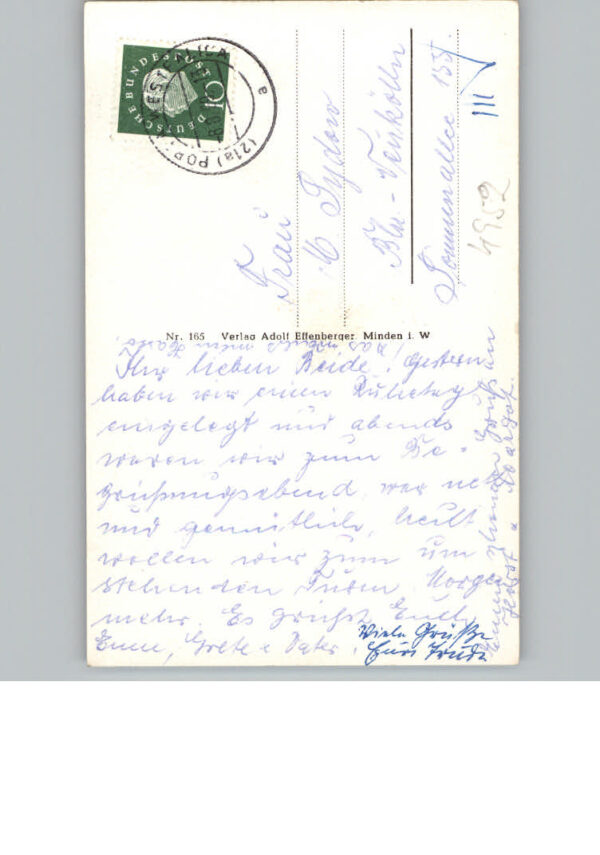 DEUTSCHE BUNDESPOST
10
WESTFALICA
(21a) POR
e
Frau
M. Sydow
Bln.-Neukölln
Sonnenallee 155
III
4952
Nr. 165 Verlag Adolf Effenberger Minden i. W
Ihr lieben Beide! Gestern
haben wir einen Ruhetag
eingelegt und abends
waren wir zum Be-
grüßungsabend, war nett
und gemütlich, heut
wollen wir zum um
stehenden Türen. Morgen
mehr. Es grüßt Euch
Grete u Vater.
Viele Grüße
Eure Trude